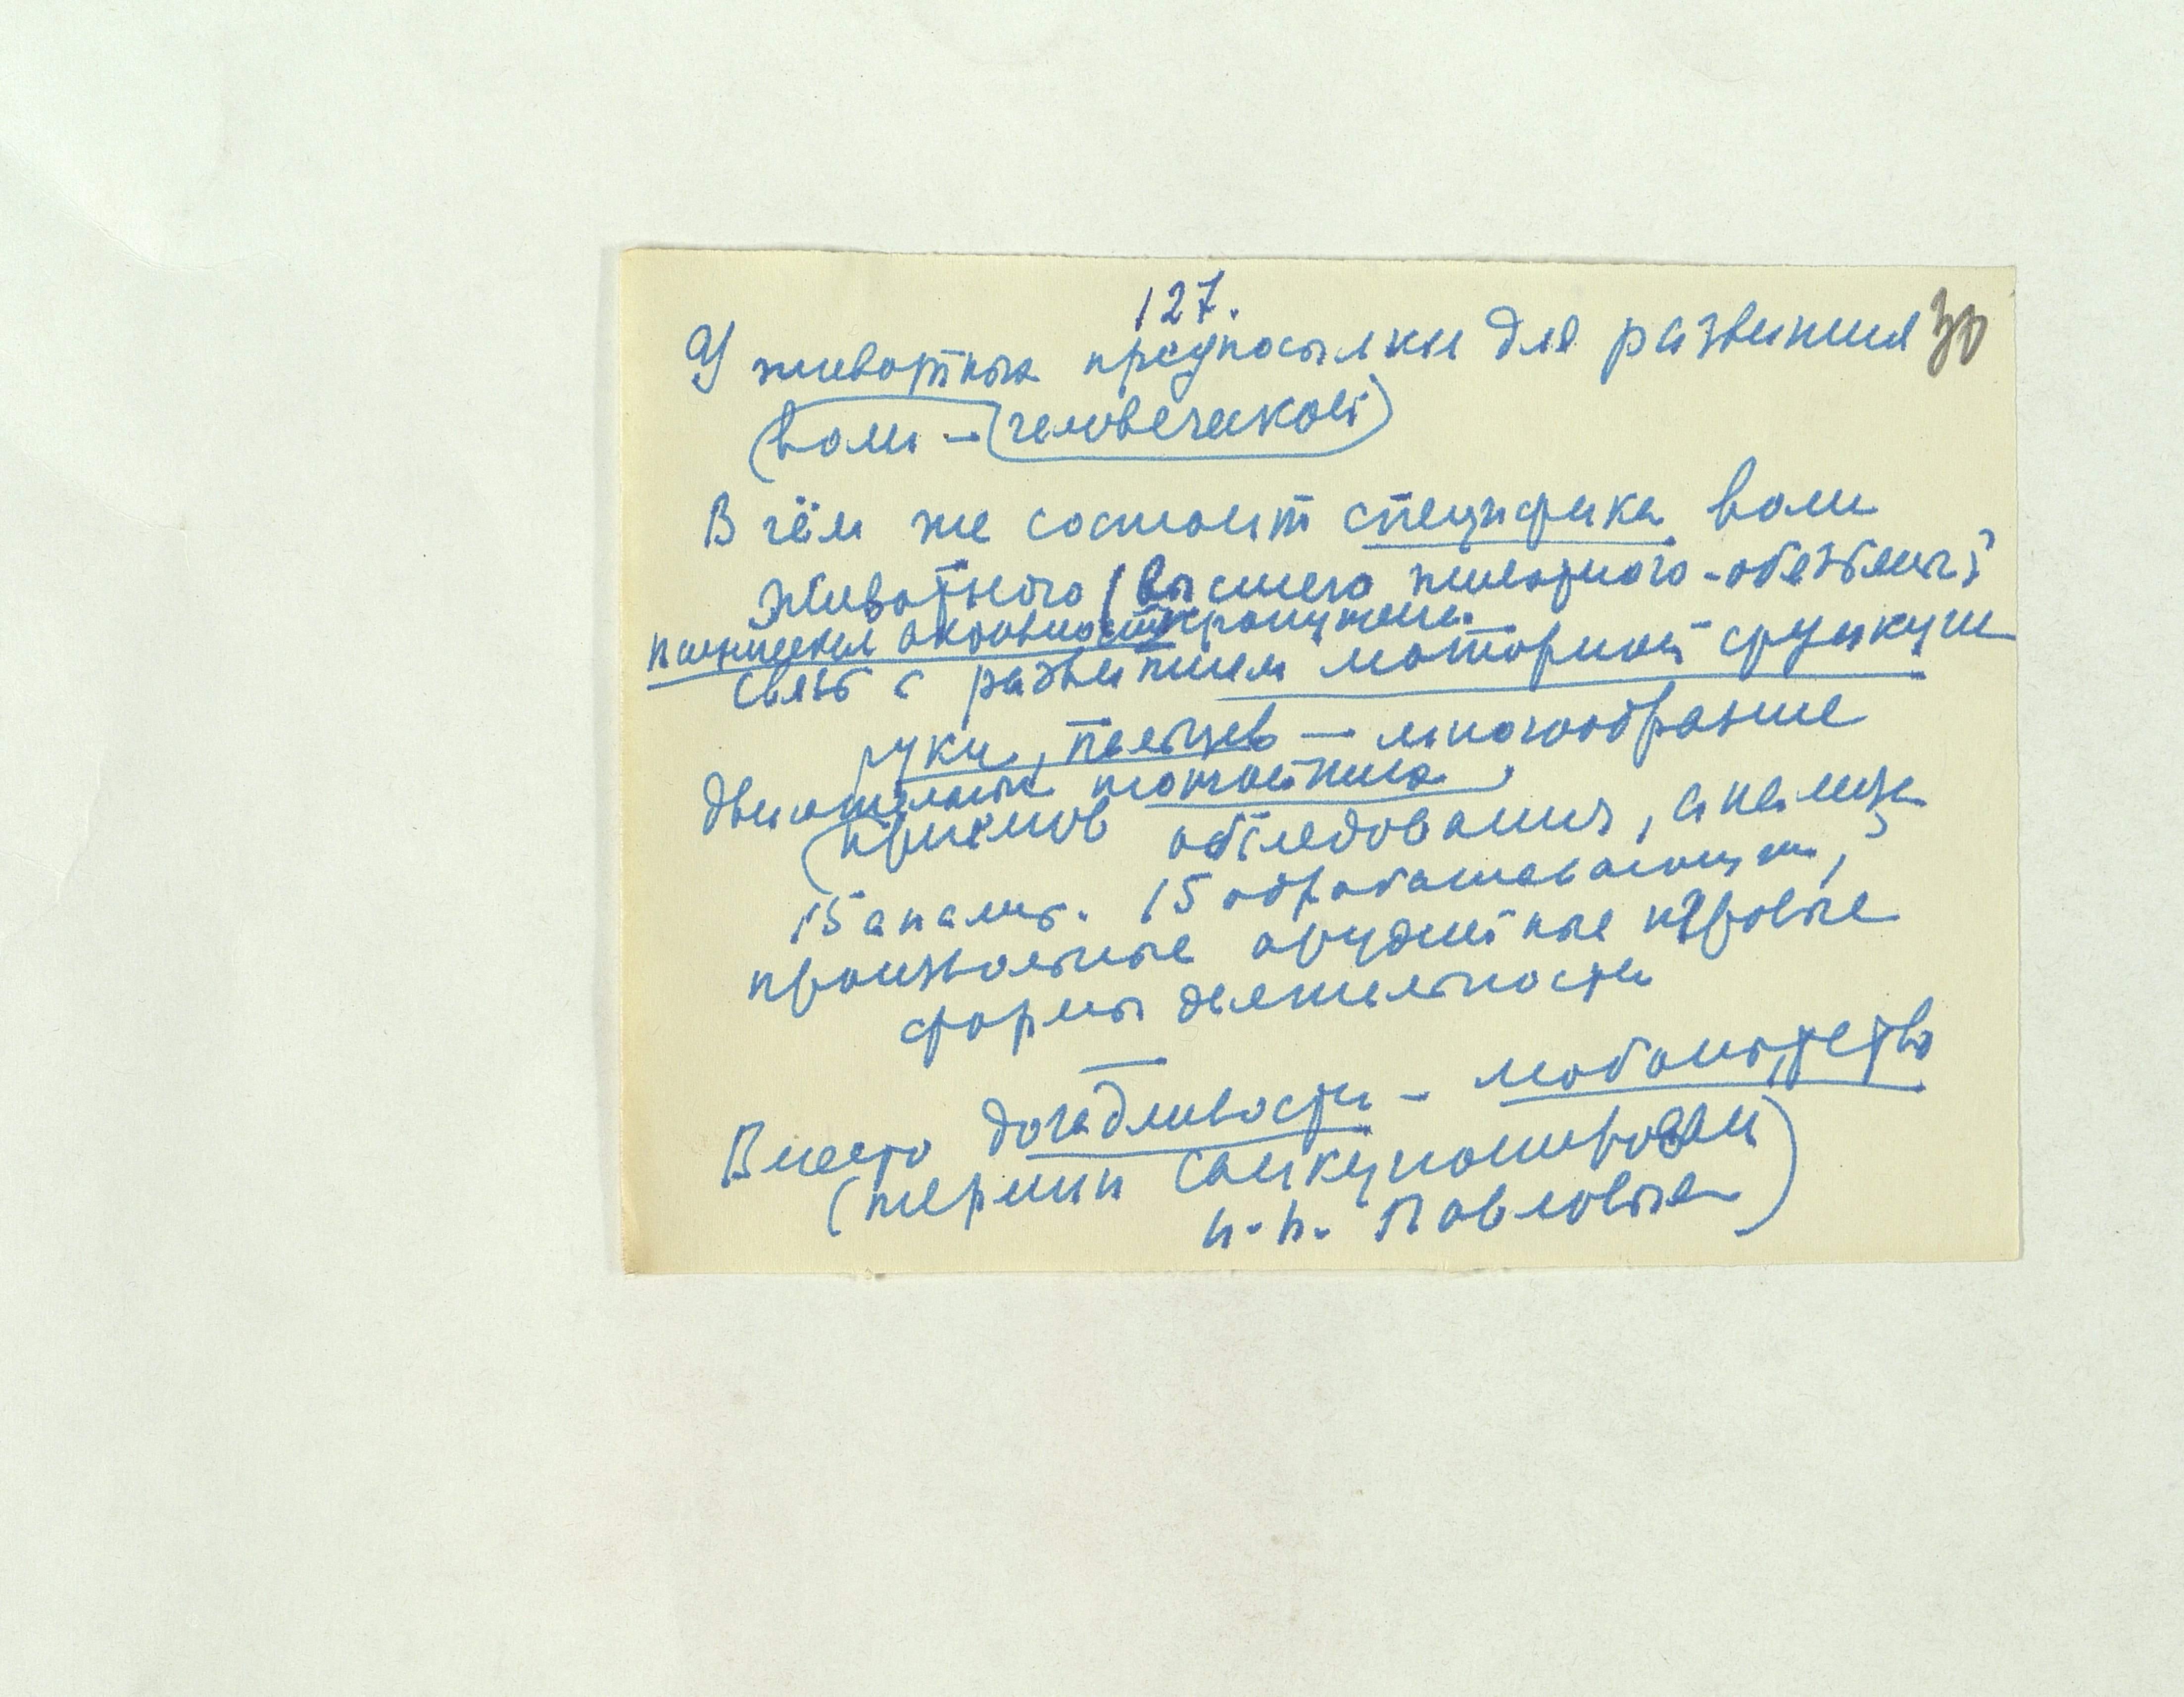 127.
У животных предпосылки для развития 30
(воли – (человеческой)
В чём же состоит специфика воли
Животного (высшего животного-обезьяны)?
психическая активность
связь с развитием моторной функции
руки, пальцев – многообразие
двигательных
(приёмов обследования, анализа
15 анализ. 15 обрабатывающ.,
произвольные орудийные игровые
формы деятельности
—
Вместо догадливости – любопытство
(термин санкционирован
И.П. Павловым)